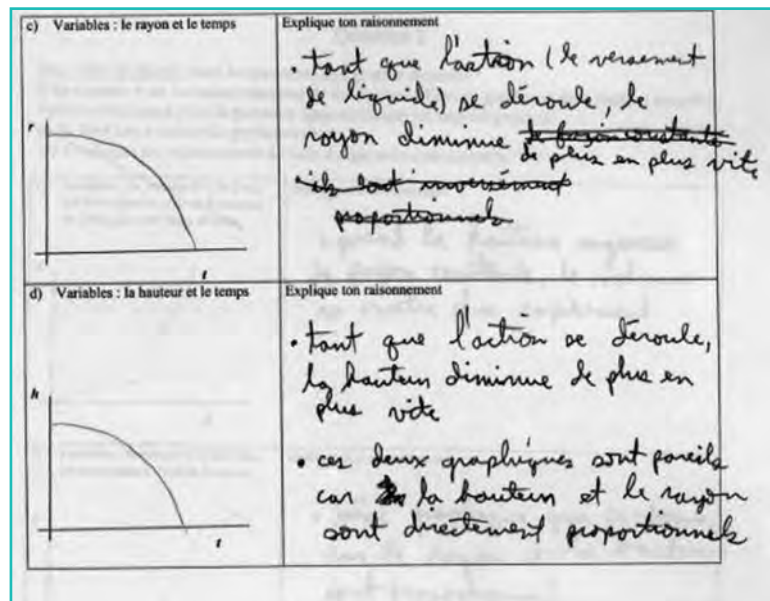 c) Variables : le rayon et le temps
Explique ton raisonnement
• tant que l'action (le versement
de liquide) se déroule, le
rayon diminue de façon constante
de plus en plus vite
• ils sont inversément
proportionnels
r
t
d) Variables : la hauteur et le temps
Explique ton raisonnement
• tant que l'action se déroule,
la hauteur diminue de plus en
plus vite
• ces deux graphiques sont pareils
car la hauteur et le rayon
sont directement proportionnels
h
t